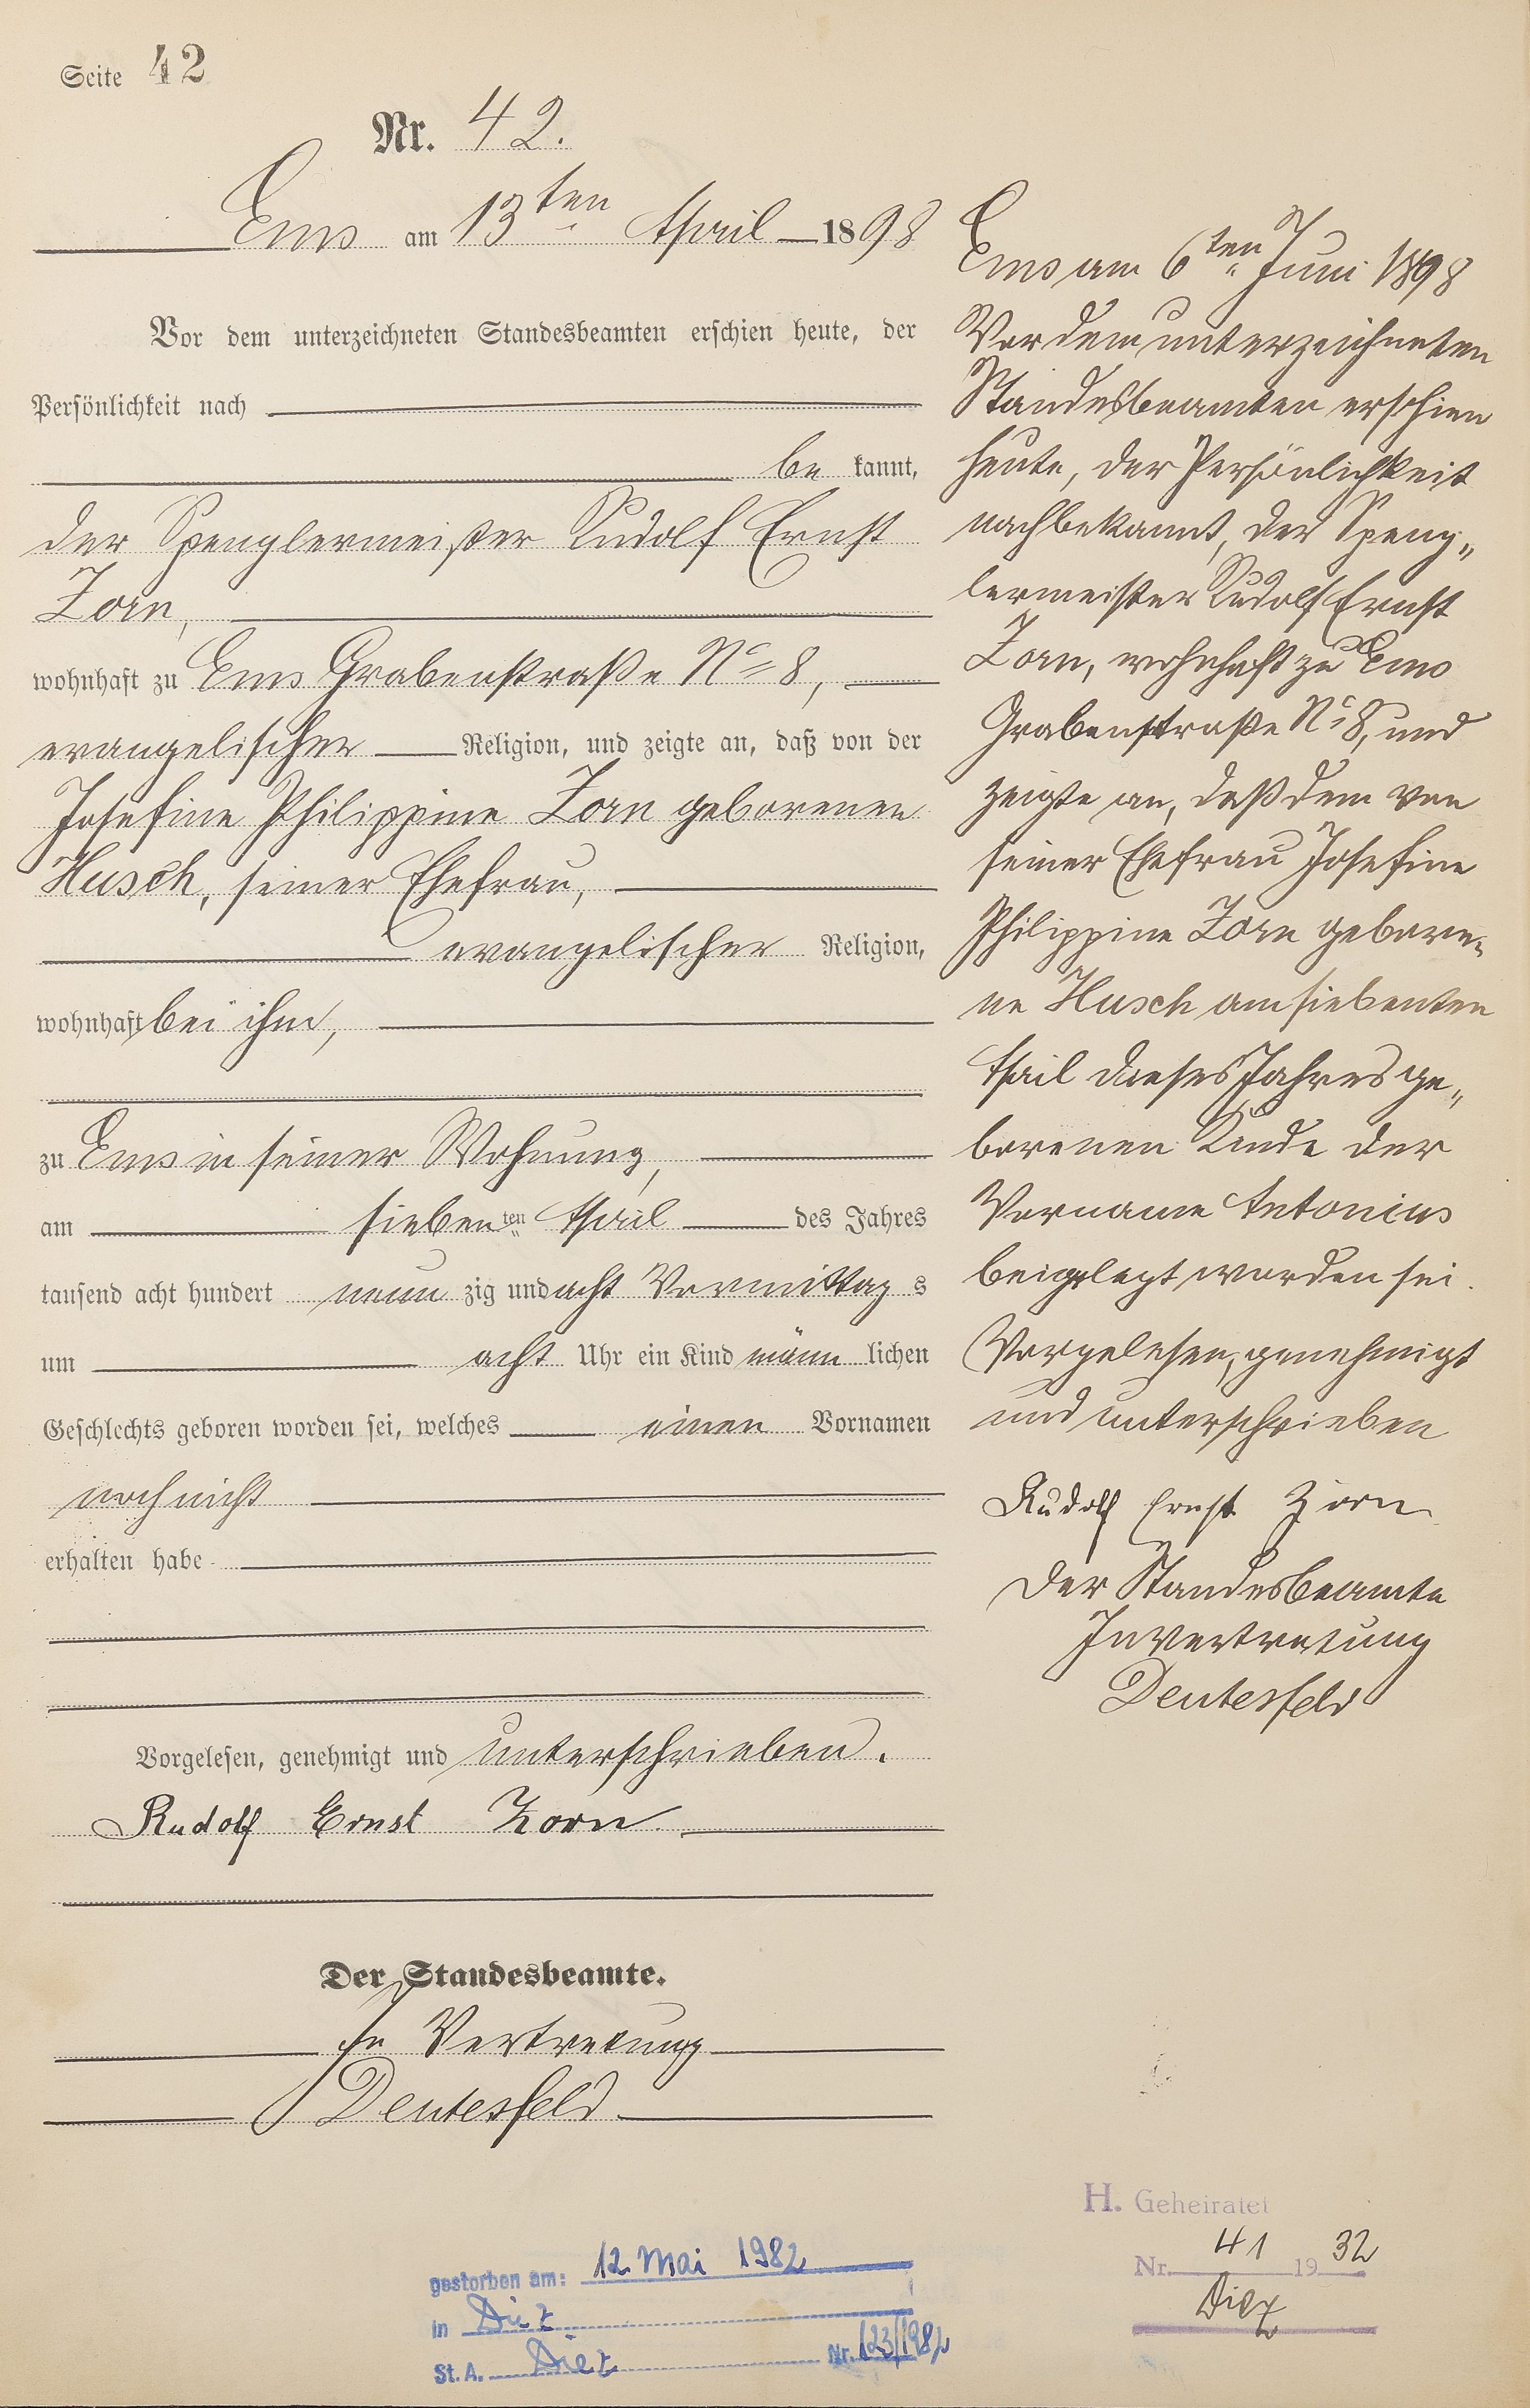 Seite 42
Nr. 42.
Ems am 13ten April 1898
Vor dem unterzeichneten Standesbeamten erschien heute, der
Persönlichkeit nach
be kannt,
der Spenglermeister Rudolf Ernst
Zorn,
wohnhaft zu Ems Grabenstraße No 8,
evangelischer Religion, und zeigte an, daß von der
Josefine Philippine Zorn geborenen
Husch, seiner Ehefrau,
evangelischer Religion,
wohnhaft bei ihm,
zu Ems in seiner Wohnung,
am siebenten April des Jahres
tausend acht hundert neun zig und acht Vormittag s
um acht Uhr ein Kind männ lichen
Geschlechts geboren worden sei, welches einen Vornamen
noch nicht
erhalten habe
Vorgelesen, genehmigt und unterschrieben.
Rudolf Ernst Zorn
Der Standesbeamte.
In Vertretung
Deutesfeld
Ems am 6ten Juni 1898
Vor dem unterzeichneten
Standesbeamten erschien
heute, der Persönlichkeit
nach bekannt, der Speng„
lermeister Rudolf Ernst
Zorn, wohnhaft zu Ems
Grabenstraße No 8, und
zeigte an, daß dem von
seiner Ehefrau Josefine
Philippine Zorn gebore„
ne Husch am siebenten
April dieses Jahres ge„
borenen Kinde der
Vorname Antonius
beigelegt worden sei.
Vorgelesen, genehmigt
und unterschrieben
Rudolf Ernst Zorn
Der Standesbeamte
In Vertretung
Deutesfeld
H. Geheiratet
Nr. 41 19 32
Diez
gestorben am: 12. Mai 1982
in Diez
St. A. Diez Nr. 123/1982